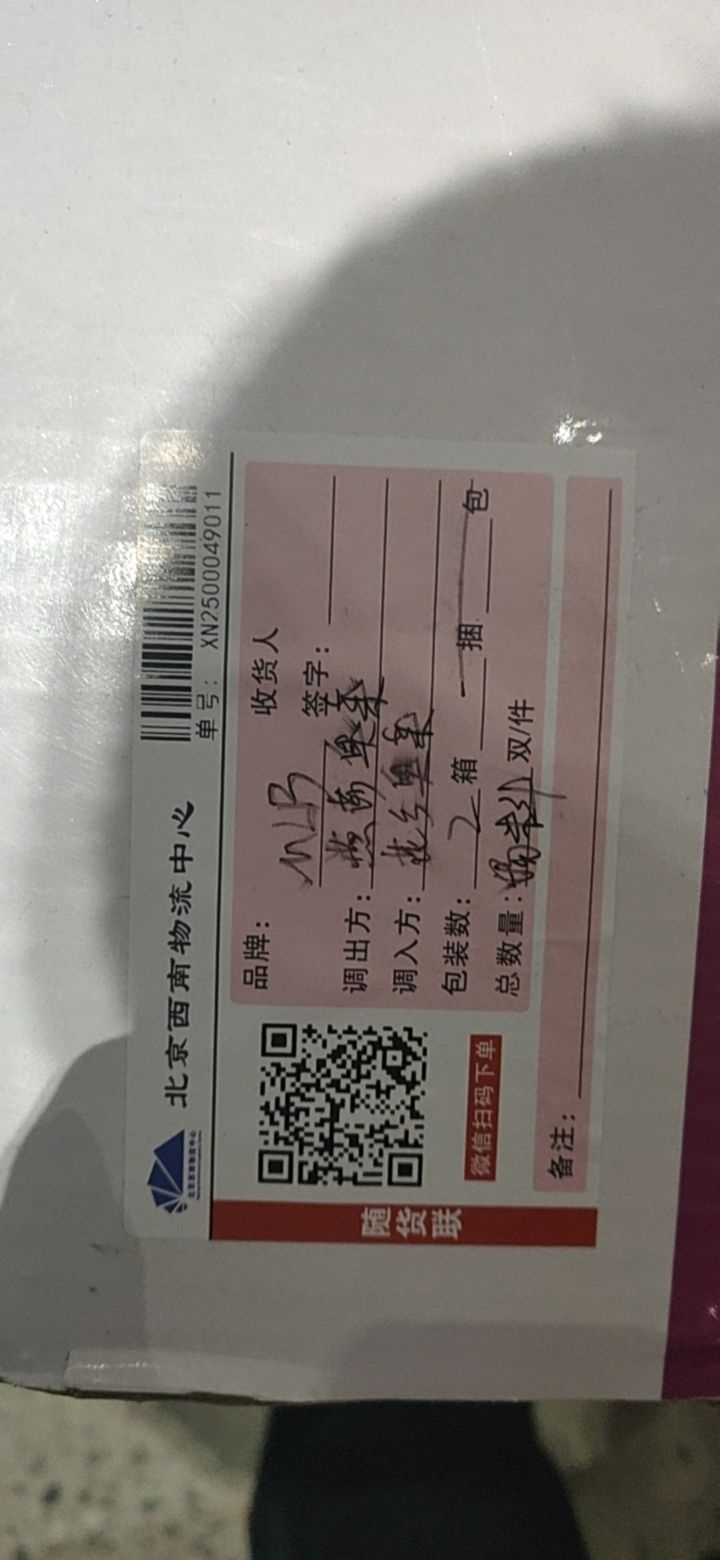 北京西南物流中心
单号: XN2500049011
品牌: MLB 收货人
签字:
调出方: 燕莎奥莱
调入方: 奥莱
包装数: 2 箱 捆 包
总数量: 双/件
微信扫码下单
备注:
随货联